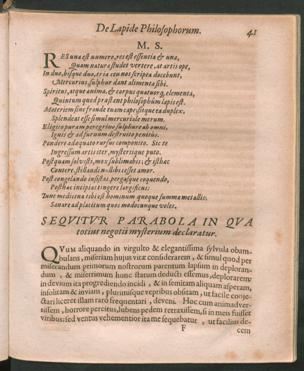 De Lapide Philosophorum. 41
M. S.
RES una est numero, res est essentia & una,
Quam natura studet vertere, at artis ope,
In duo, bisque duo, tria ceu nos scripta docebunt,
Mercurius, sulphur dant alimenta sibi.
Spiritus, atque anima, & corpus quatuorq; elementa,
Quintum quod præstent philosophum lapis est.
Materiem sine fraude tuam capesitque ea duplex,
Splendeat esse simul mercuriale metrum.
Eligito puram peregrino sulphure ab omni,
Ignis & ad furnum destruito penitus.
Pondere adequato rursus componito. Sic te
Ingressum artis iter, mysteriique puto.
Postquam solvisti, mox sublimabis; & isthæc
Contere, stillandi sibi cesset amor.
Post congelando insistas, pergasque coquendo,
Posthac incipias tingere largificus:
Tunc medicina tibi est hominum quæque summa metallis:
Sanare ad placitum quos modo cunque voles,
SEQUITUR PARABOLA IN QUA
totius negotii mysterium declaratur.
QUum aliquando in virgulto & elegantissima sylvula obam-
bulans, miseriam hujus vitæ considerarem, & simul quod per
miserandum primorum nostrorum parentum lapsum in deploran-
dum, & miserrimum hunc statum deducti essemus, deplorarem:
in devium ita progrediendo incidi, & in semitam aliquam asperam,
insolitam & inviam, plurimisque vepribus obsitam, ut facile conje-
ctari liceret illam raro frequentari, deveni. Hoc cum animadver-
tissem, horrore percitus, lubens pedem retraxissem, si in meis fuisset
viribus: sed ventus vehementior ita me sequebatur, ut facilius de-
F cem